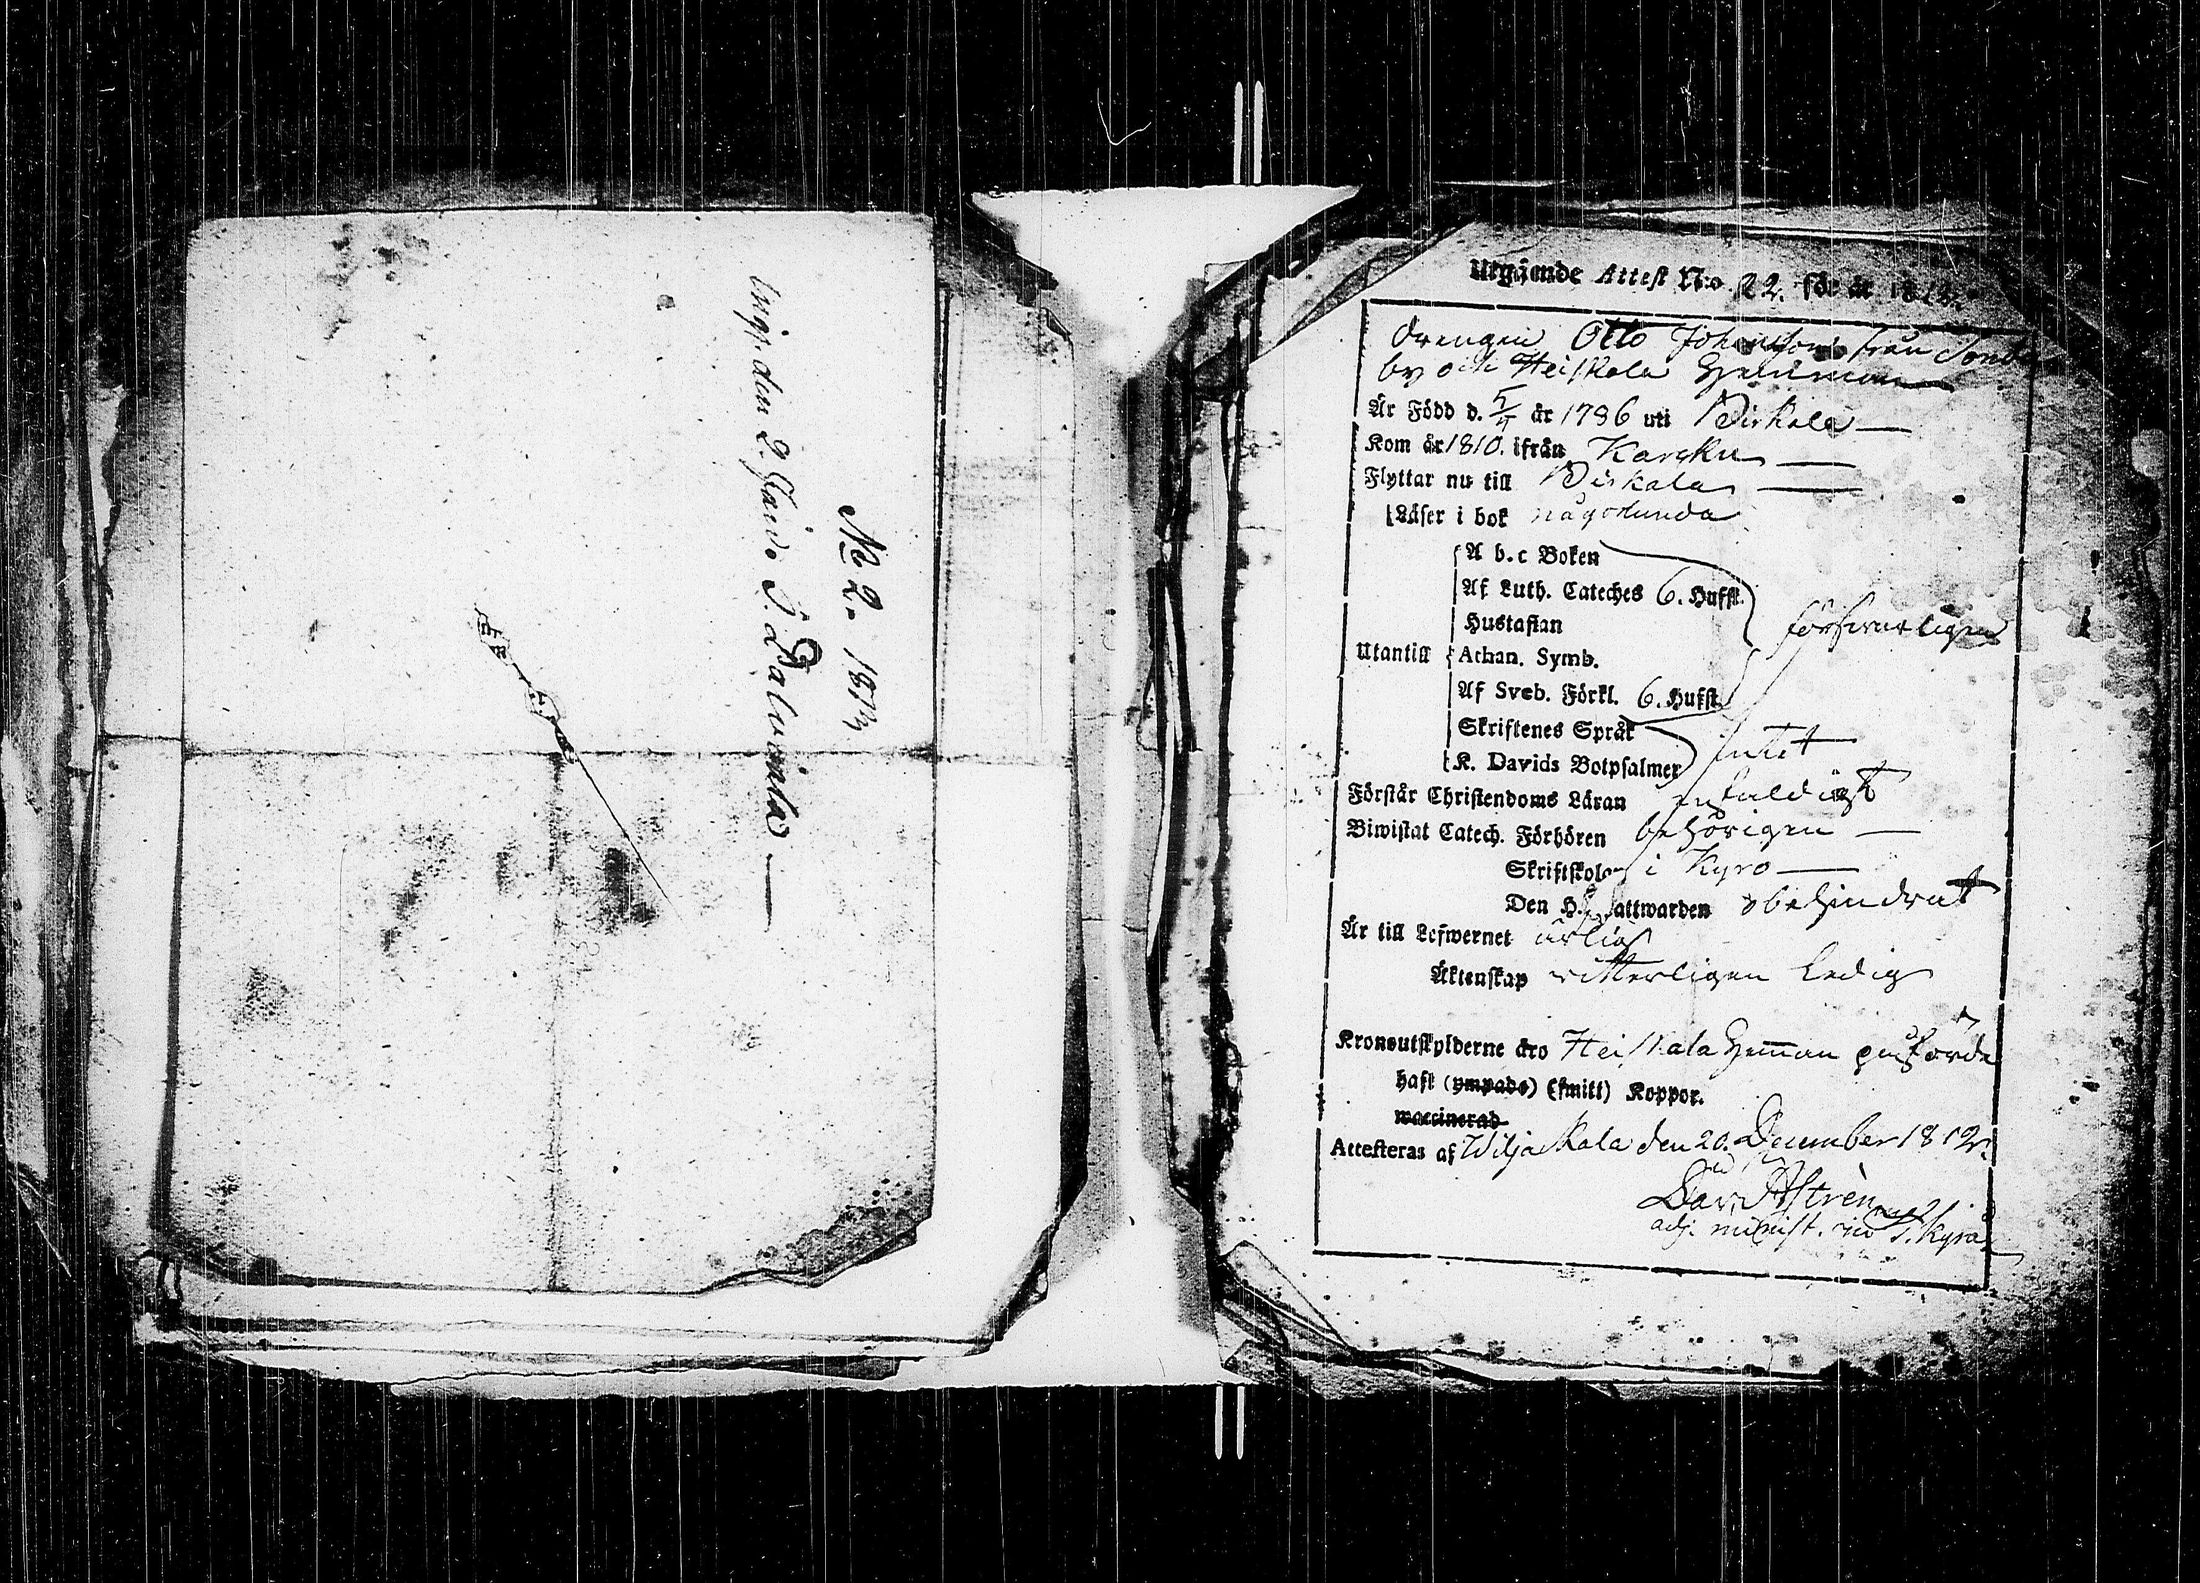 No 2. 1813
den 2. J. Palvoniala
Utgående Attest N:o 22. för år 1812.
Drengen Otto Johansson från
by och Heiskala Hemman
Är Född d. 5/4 år 1786 uti Birkala
Kom år 1810. ifrån Karcku
Flyttar nu till Birkala
Läser i bok någorlunda
A b.c Boken
Af Luth. Cateches 6. Hufst.
Hustaflan försvarligen
Utantill Athan. Symb.
Af Sveb. Förkl. 6. Hufst.
Skriftenes Språk
K. Davids Botpsalmer intet
Förstår Christendoms Läran enfaldigt
Biwistat Catech. Förhören behörigen
Skriftskolan i Kyro
Den H. Nattwarden obehindrat
Är till Lefwernet ärlig
Äktenskap ledig
Kronoutskylderne äro Heiskala Hemman påförde
haft (ympade) (smitt) Koppor.
waccinerad
Attesteras af Wiljakkala den 20. December 1812.
David Astrèn
adj. minist. i T. Kyro